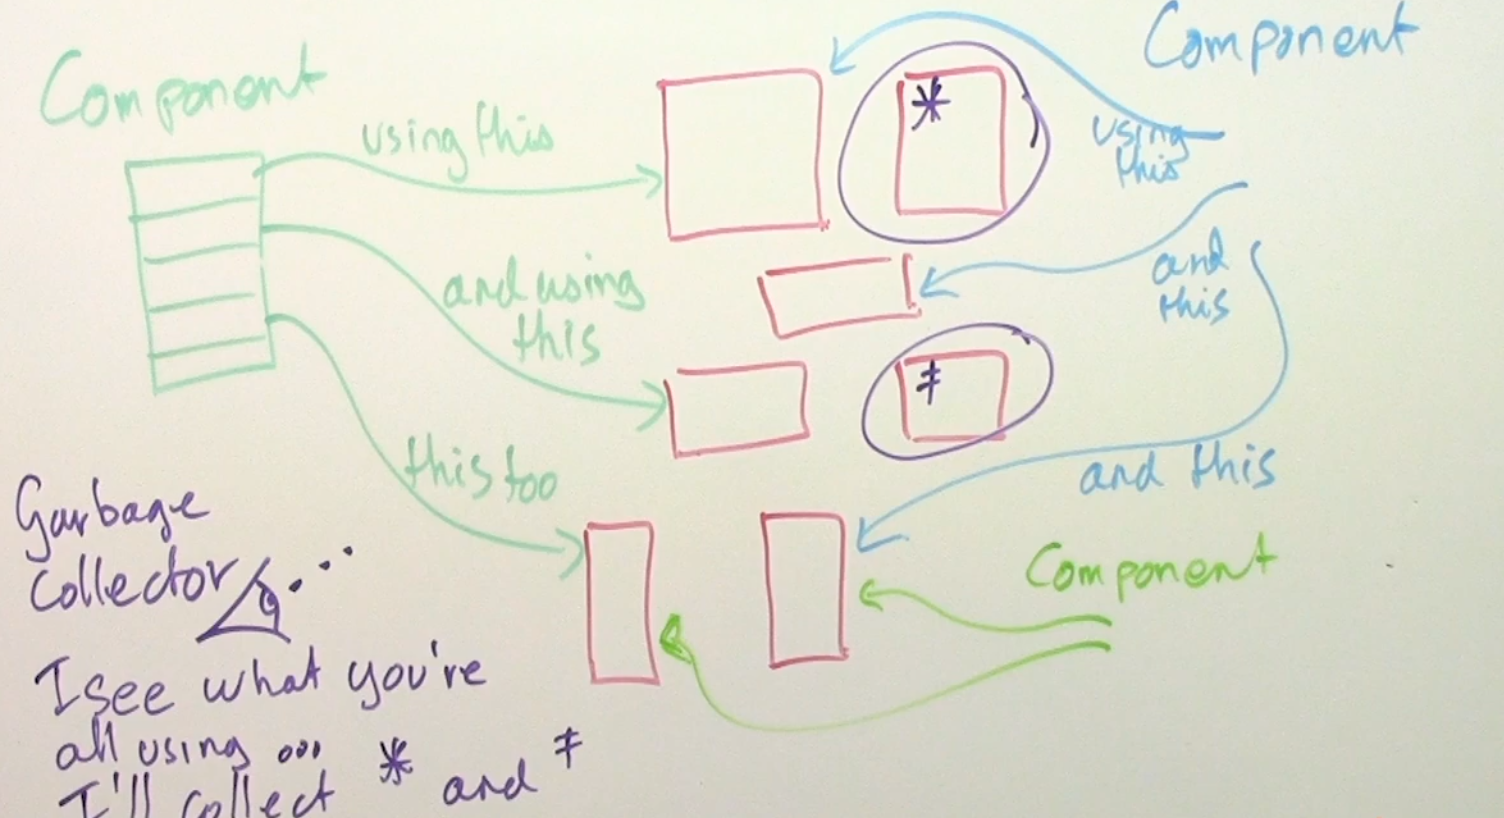 Component
using this
and using
this
this too
Component
using
this
and
this
and this
Component
*
‡
Garbage
Collector
I see what you're
all using ...
I'll collect * and ‡